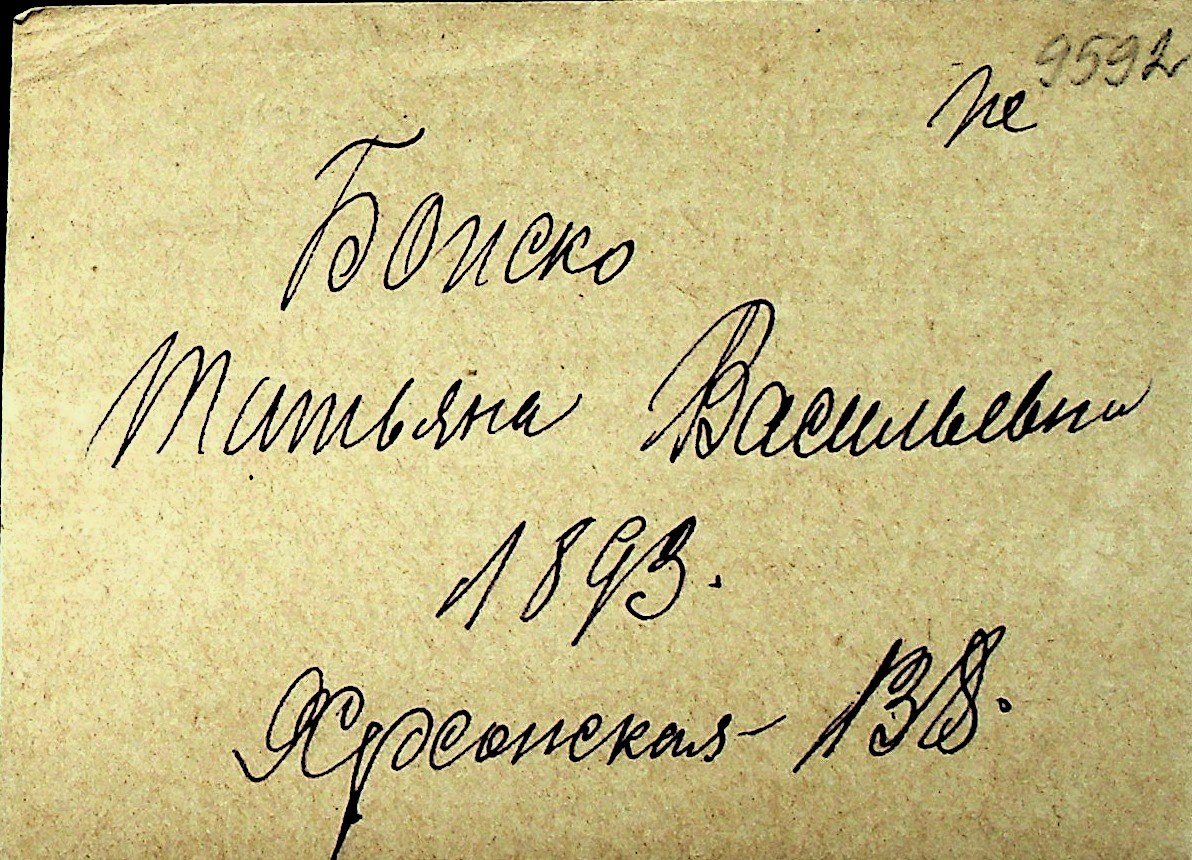 9592
не
Боиско
Татьяна Васильевна
1893.
Херсонская 138.